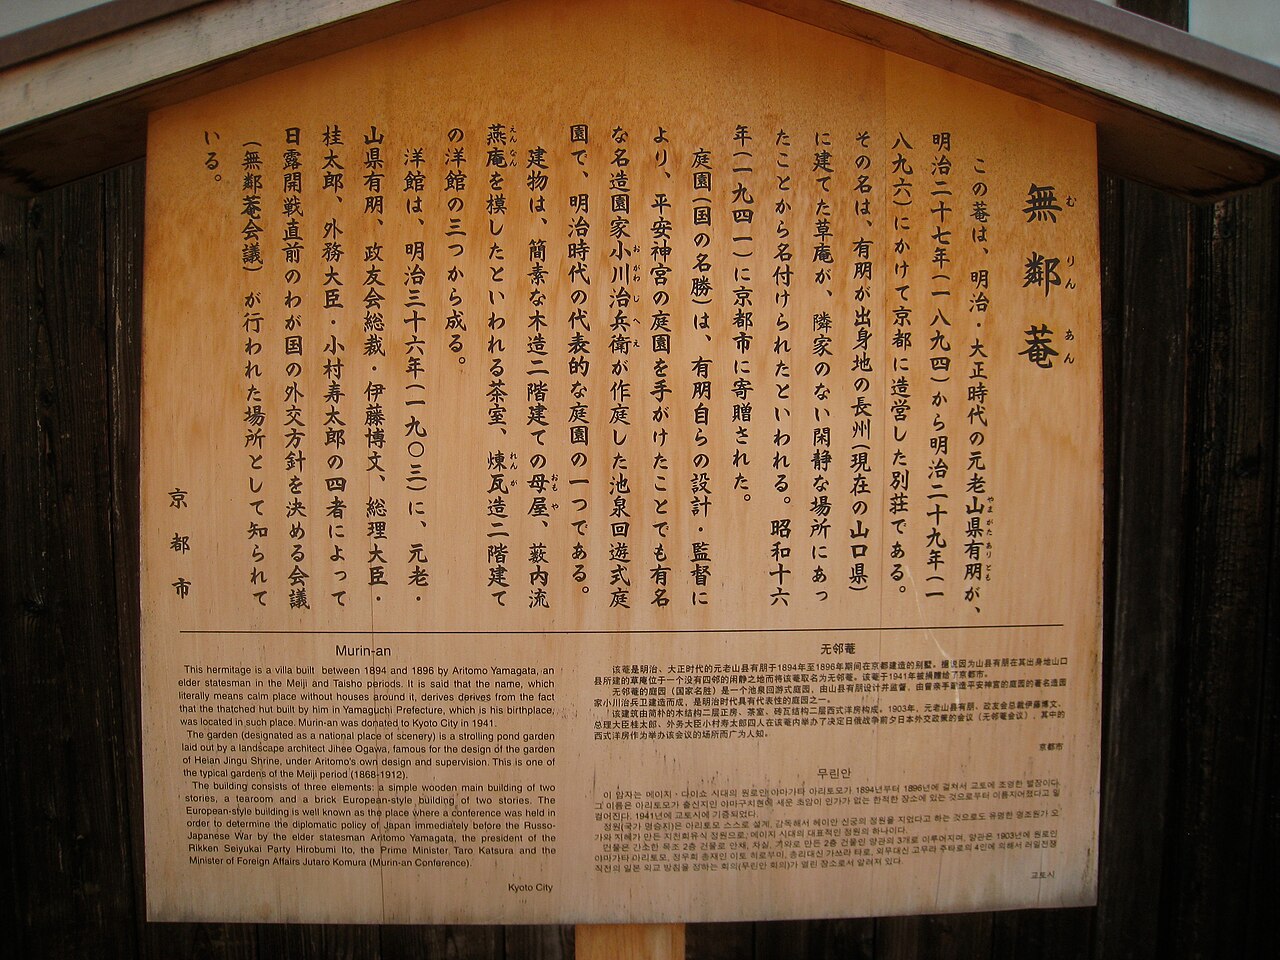 無鄰菴
むりんあん
この菴は、明治・大正時代の元老山県有朋が、
やまがたありとも
明治二十七年(一八九四)から明治二十九年(一
八九六)にかけて京都に造営した別荘である。
その名は、有朋が出身地の長州(現在の山口県)
に建てた草庵が、隣家のない閑静な場所にあっ
たことから名付けられたといわれる。昭和十六
年(一九四一)に京都市に寄贈された。
庭園(国の名勝)は、有朋自らの設計・監督に
より、平安神宮の庭園を手がけたことでも有名
な名造園家小川治兵衛が作庭した池泉回遊式庭
おがわじへえ
園で、明治時代の代表的な庭園の一つである。
建物は、簡素な木造二階建ての母屋、薮内流
おもや
燕庵を模したといわれる茶室、煉瓦造二階建て
えんなん
れんが
の洋館の三つから成る。
洋館は、明治三十六年(一九〇三)に、元老・
山県有朋、政友会総裁・伊藤博文、総理大臣・
桂太郎、外務大臣・小村寿太郎の四者によって
日露開戦直前のわが国の外交方針を決める会議
(無鄰菴会議)が行われた場所として知られて
いる。
京都市
Murin-an
This hermitage is a villa built between 1894 and 1896 by Aritomo Yamagata, an
elder statesman in the Meiji and Taisho periods. It is said that the name, which
literally means calm place without houses around it, derives derives from the fact
that the thatched hut built by him in Yamaguchi Prefecture, which is his birthplace,
was located in such place. Murin-an was donated to Kyoto City in 1941.
The garden (designated as a national place of scenery) is a strolling pond garden
laid out by a landscape architect Jihee Ogawa, famous for the design of the garden
of Heian Jingu Shrine, under Aritomo's own design and supervision. This is one of
the typical gardens of the Meiji period (1868-1912).
The building consists of three elements: a simple wooden main building of two
stories, a tearoom and a brick European-style building of two stories. The
European-style building is well known as the place where a conference was held in
order to determine the diplomatic policy of Japan immediately before the Russo-
Japanese War by the elder statesman Aritomo Yamagata, the president of the
Rikken Seiyukai Party Hirobumi Ito, the Prime Minister Taro Katsura and the
Minister of Foreign Affairs Jutaro Komura (Murin-an Conference).
Kyoto City
无邻菴
该菴是明治、大正时代的元老山县有朋于1894年至1896年期间在京都建造的别墅。据说因为山县有朋在其出身地山口
县所建的草庵位于一个没有四邻的闲静之地而将该菴取名为无邻菴。该菴于1941年被捐赠给了京都市。
无邻菴的庭园(国家名胜)是一个池泉回游式庭园,由山县有朋设计并监督,由曾亲手建造平安神宫的庭园的著名造园
家小川治兵卫建造而成,是明治时代具有代表性的庭园之一。
该建筑由简朴的木结构二层正房、茶室、砖瓦结构二层西式洋房构成。1903年,元老山县有朋、政友会总裁伊藤博文、
总理大臣桂太郎、外务大臣小村寿太郎四人在该菴内举办了决定日俄战争前夕日本外交政策的会议(无邻菴会议),其中的
西式洋房作为举办该会议的场所而广为人知。
京都市
무린안
이 암자는 메이지・다이쇼 시대의 원로인 야마가타 아리토모가 1894년부터 1896년에 걸쳐서 교토에 조영한 별장이다.
그 이름은 아리토모가 출신지인 야마구치현에 세운 초암이 인가가 없는 한적한 장소에 있는 것으로부터 이름지어졌다고 말
걸어진다. 1941년에 교토시에 기증되었다.
정원(국가 명승지)은 아리토모 스스로 설계, 감독해서 헤이안 신궁의 정원을 지었다고 하는 것으로도 유명한 명조원가 오
가와 지헤가 만든 지천회유식 정원으로, 메이지 시대의 대표적인 정원의 하나이다.
건물은 간소한 목조 2층 건물로 안채, 차실, 기와로 만든 2층 건물인 양관의 3개로 이루어지며, 양관은 1903년에 원로인
야마가타 아리토모, 정우회 총재인 이토 히로부미, 총리대신 가쓰라 타로, 외무대신 고무라 주타로의 4인에 의해서 러일전쟁
직전의 일본 외교 방침을 정하는 회의(무린안 회의)가 열린 장소로서 알려져 있다.
교토시